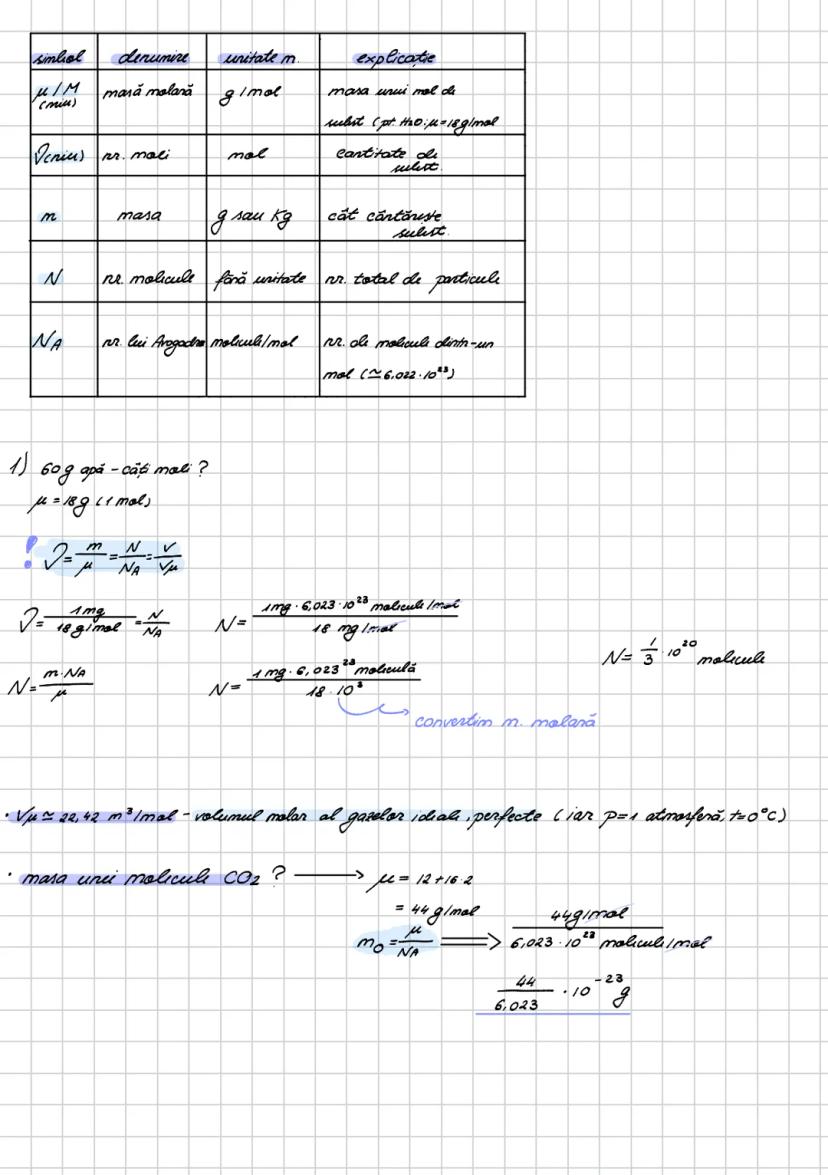 simbol denumire unitate m. explicație
μ / M masă molară g / mol masa unui mol de
(miu) subst (pt. H₂O: μ = 18 g/mol
ν (niu) nr. moli mol cantitate de
subst.
m masa g sau Kg cât cântărește
subst.
N nr. molecule fără unitate nr. total de particule
N_A nr. lui Avogadro molecule/mol nr. de molecule dintr-un
mol (≃ 6,022 · 10²³)
1) 60 g apă - câți moli ?
μ = 18 g (1 mol)
! ν = m/μ = N/N_A = V/Vμ
ν = 1 mg / 18 g/mol = N/N_A N = 1 mg · 6,023 · 10²³ molecule/mol / 18 mg/mol
N = 1/3 · 10²⁰ molecule
N = m · N_A / μ N = 1 mg · 6,023²³ moleculă / 18 · 10³
convertim m. molară
· Vμ ≃ 22,42 m³/mol - volumul molar al gazelor ideale, perfecte (iar p = 1 atmosferă, t = 0°C)
· masa unei molecule CO₂ ? ⟶ μ = 12 + 16 · 2
= 44 g/mol
m₀ = μ/N_A ⟹ 44 g/mol / 6,023 · 10²³ molecule/mol
44/6,023 · 10⁻²³ g